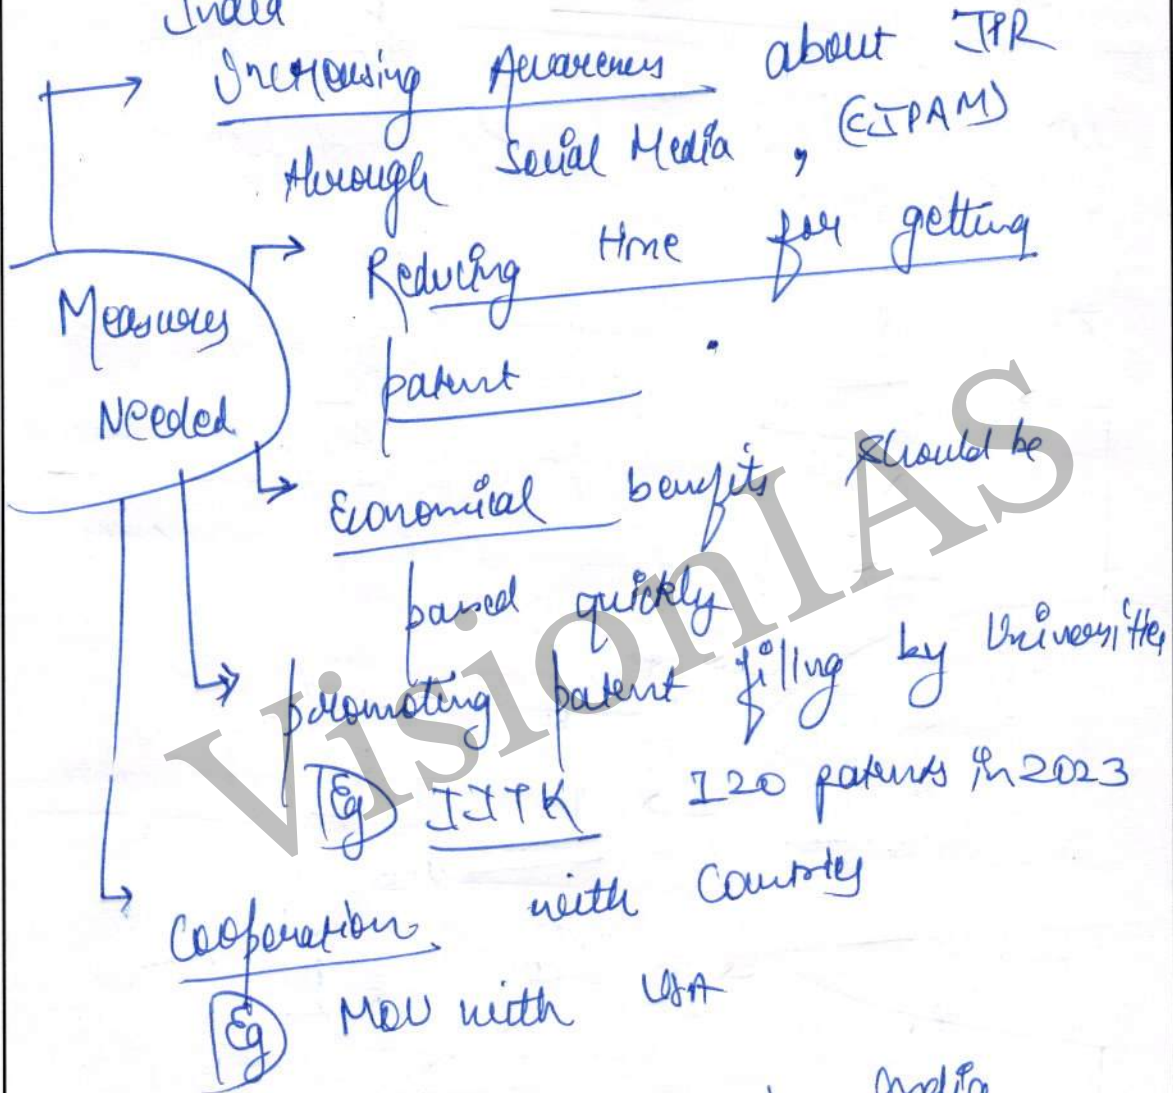 India
Increasing Awareness about IPR
through Social Media, (CIPAM)
Measures
Needed
Reducing time for getting
patent
Economical benefits should be
passed quickly
promoting patent filling by Universities
Eg IITK 120 patents in 2023
Cooperation with Countries
Eg MOU with USA
India
VisionIAS